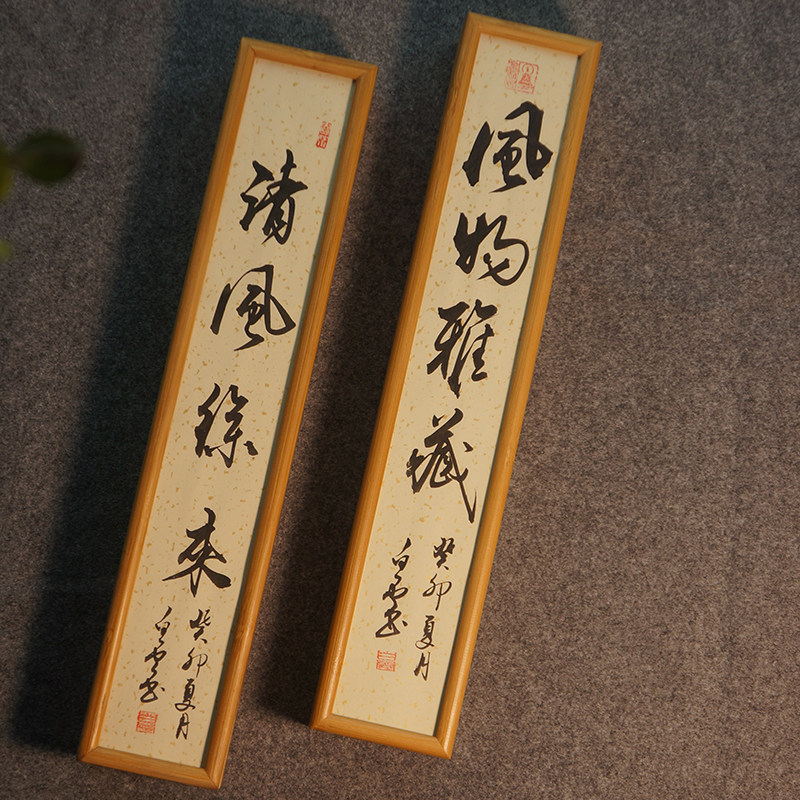 清風徐来
癸卯夏月
白雲書
風物雅藏
癸卯夏月
白雲書